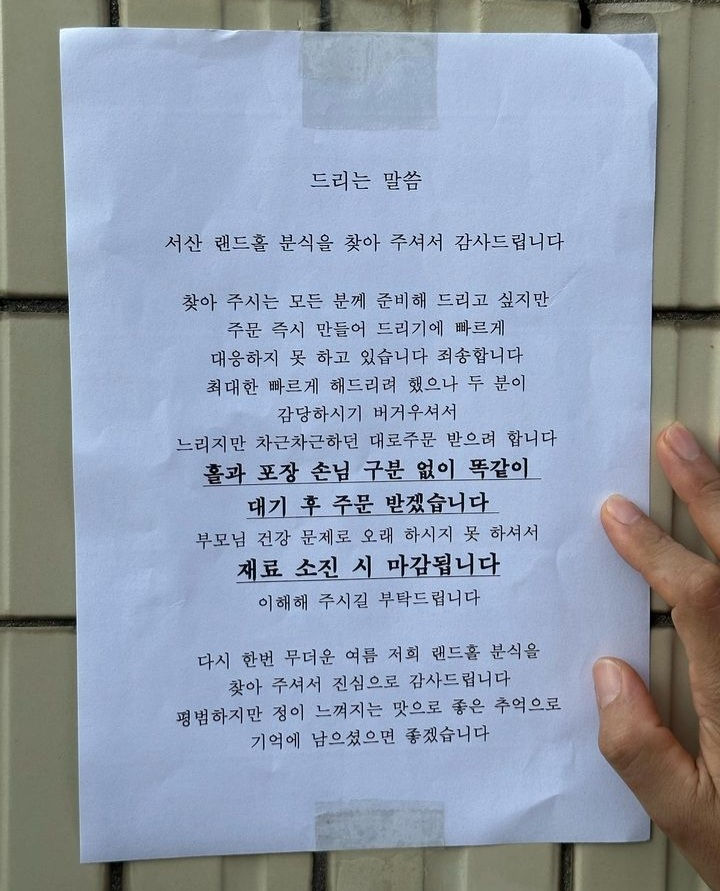 드리는 말씀
서산 랜드홀 분식을 찾아 주셔서 감사드립니다
찾아 주시는 모든 분께 준비해 드리고 싶지만
주문 즉시 만들어 드리기에 빠르게
대응하지 못 하고 있습니다 죄송합니다
최대한 빠르게 해드리려 했으나 두 분이
감당하시기 버거우셔서
느리지만 차근차근하던 대로주문 받으려 합니다
홀과 포장 손님 구분 없이 똑같이
대기 후 주문 받겠습니다
부모님 건강 문제로 오래 하시지 못 하셔서
재료 소진 시 마감됩니다
이해해 주시길 부탁드립니다
다시 한번 무더운 여름 저희 랜드홀 분식을
찾아 주셔서 진심으로 감사드립니다
평범하지만 정이 느껴지는 맛으로 좋은 추억으로
기억에 남으셨으면 좋겠습니다